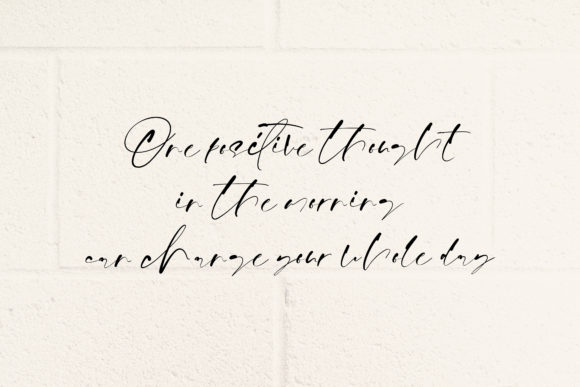 One positive thought
in the morning
can change your whole day